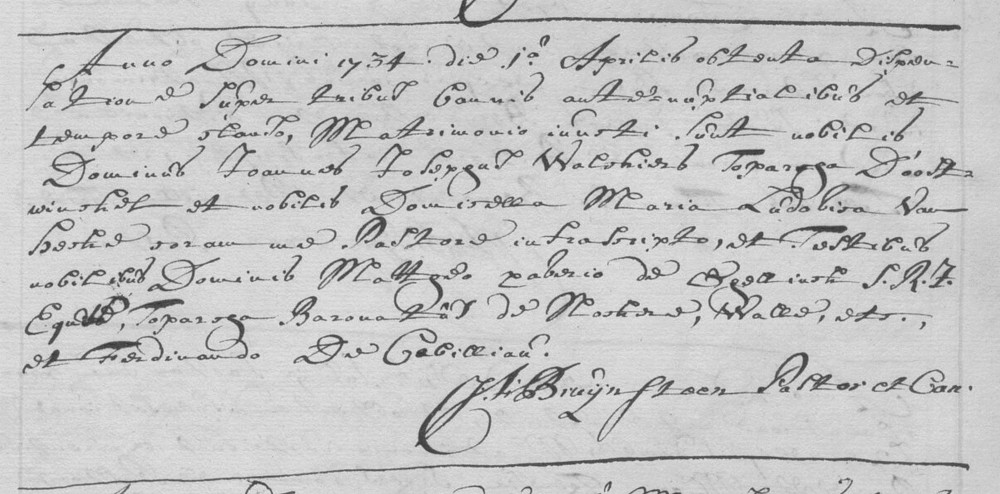 Anno Domini 1734 die 1ª Aprilis obtenta dispen=
satione super tribus bannis ante-nuptialibus et
tempore clauso, Matrimonio iuncti sunt nobilis
Dominus Joannes Josephus Walchiers Toparcha D'oost-
winckel et nobilis Domicella Maria Ludovica Van
hecke coram me Pastore infrascripto, et Testibus
nobilibus Dominis Mattheo xaverio de Ghellinck S.R.I.
Equite, Toparcha Baronatus de Nockere, Walle, etc.,
et Ferdinando De Cabilliau.
Bruÿnsteen Pastor et Can.